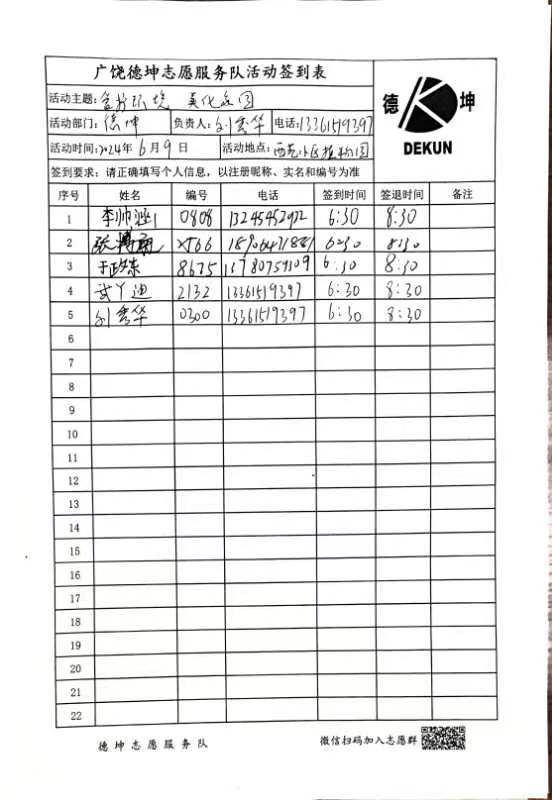 广饶德坤志愿服务队活动签到表
德 坤
DEKUN
活动主题: 环境 美化家园
活动部门: 德坤 负责人: 刘秀华 电话: 13361519397
活动时间: 2024年 6月 9日 活动地点: 西苑小区植物园
签到要求: 请正确填写个人信息，以注册昵称、实名和编号为准
序号 姓名 编号 电话 签到时间 签退时间 备注
1 李帅 0808 13245452922 6:30 8:30
2 张 6:30 8:30
3 于政东 8675 13780759109 6:30 8:30
4 武丫迪 2132 13361519397 6:30 8:30
5 刘秀华 0300 13361519397 6:30 8:30
6
7
8
9
10
11
12
13
14
15
16
17
18
19
20
21
22
德坤志愿服务队 微信扫码加入志愿群